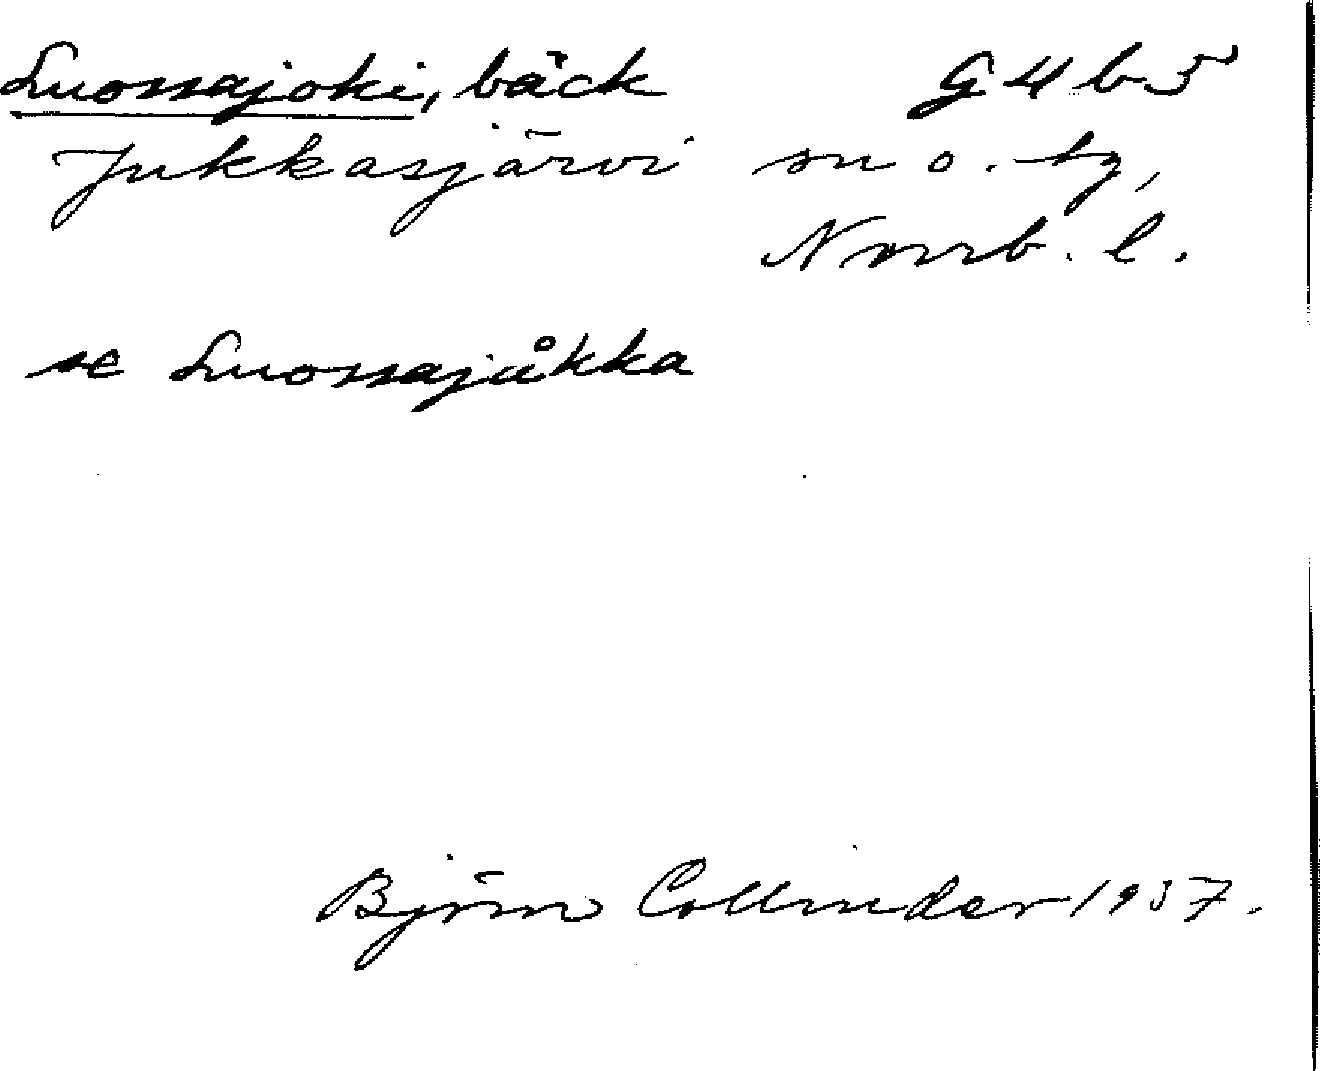 Luossajoki, bäck G 4 b 5
Jukkasjärvi sn o. tg,
Norrb. l.
se Luossajåkka
Björn Collinder 1937.